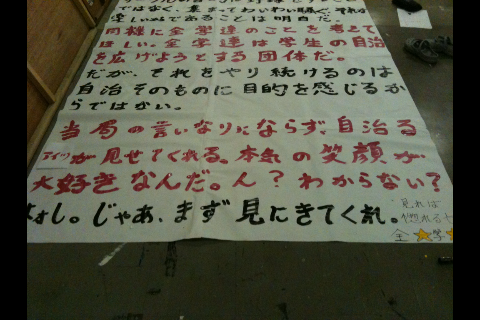 ではなく、まってがいわい騒ぐ、それが
楽しいからであることは明白だ。
同様に全学連のことを考えて
ほしい。全学連は学生の自治
を広げようとする団体だ。
だが、それをやり続けるのは
自治そのものに目的を感じるか
らではない。
当局の言いなりにならず、自治る
ライツが見せてくれる。本気の笑顔が
大好きなんだ。ん?わからない?
よし。じゃあ、まず見にきてくれ。
見れば
惚れる
全★学